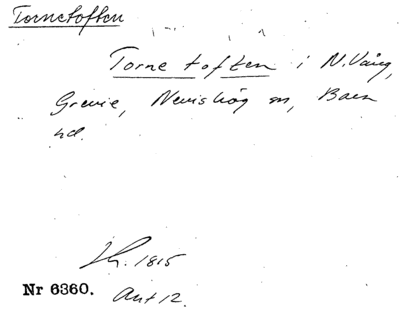 Tornetoften
Torne toften i N. Vång,
Grevie, Nevishög sn, Bara
hd.
1815
Nr 6360. Akt 12.